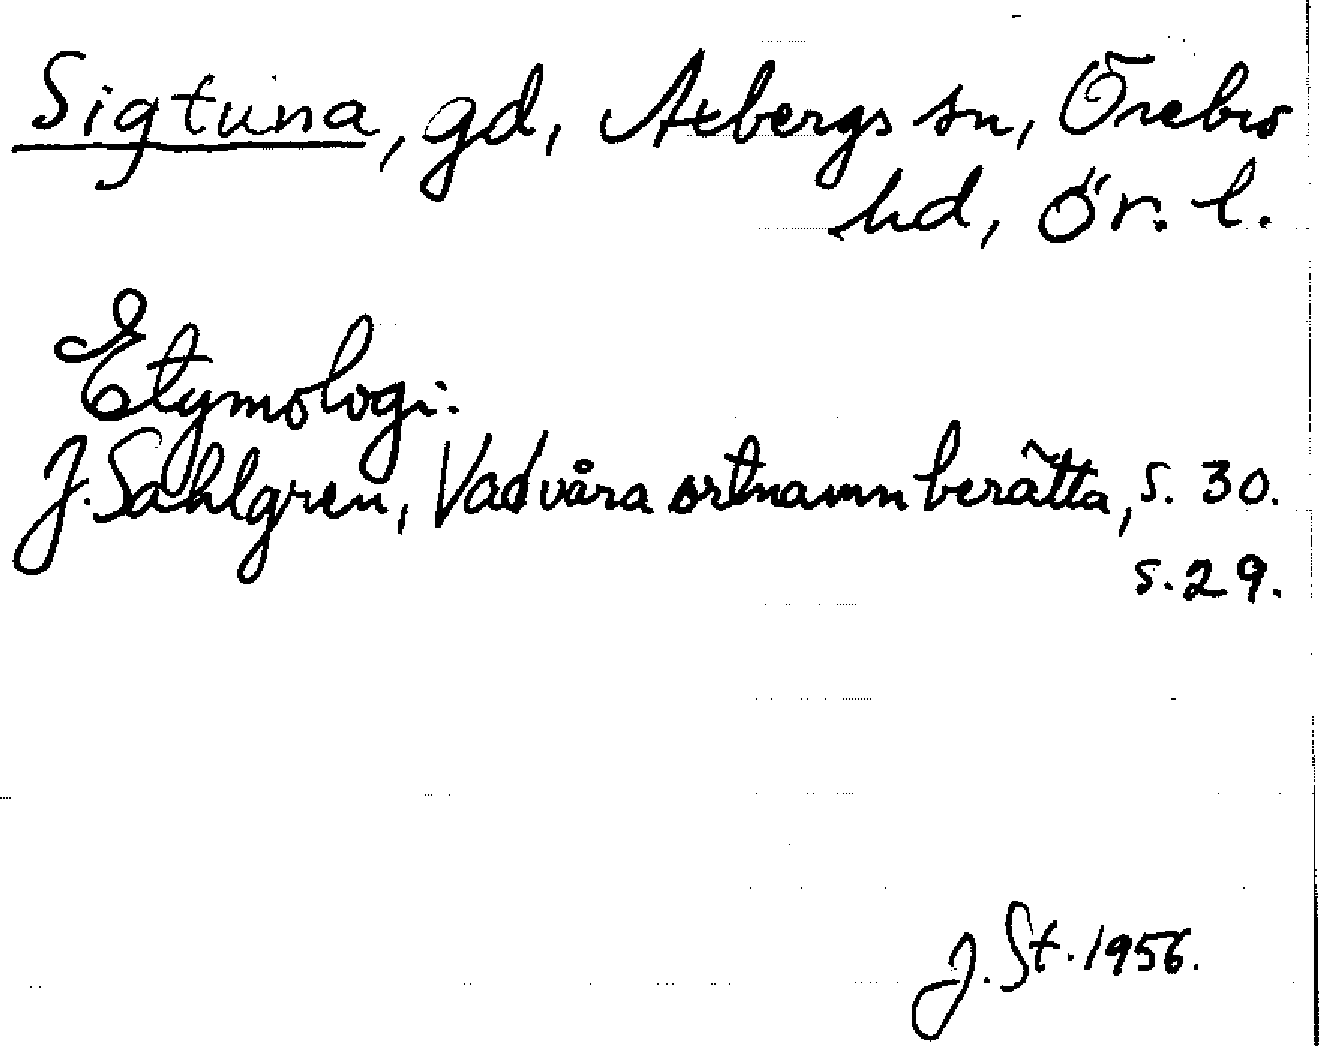 Sigtuna, gd, Axbergs sn, Örebro
hd, Ör. l.
Etymologi.
J. Sahlgren, Vad våra ortnamn berätta, s. 30.
s. 29.
J. St. 1956.